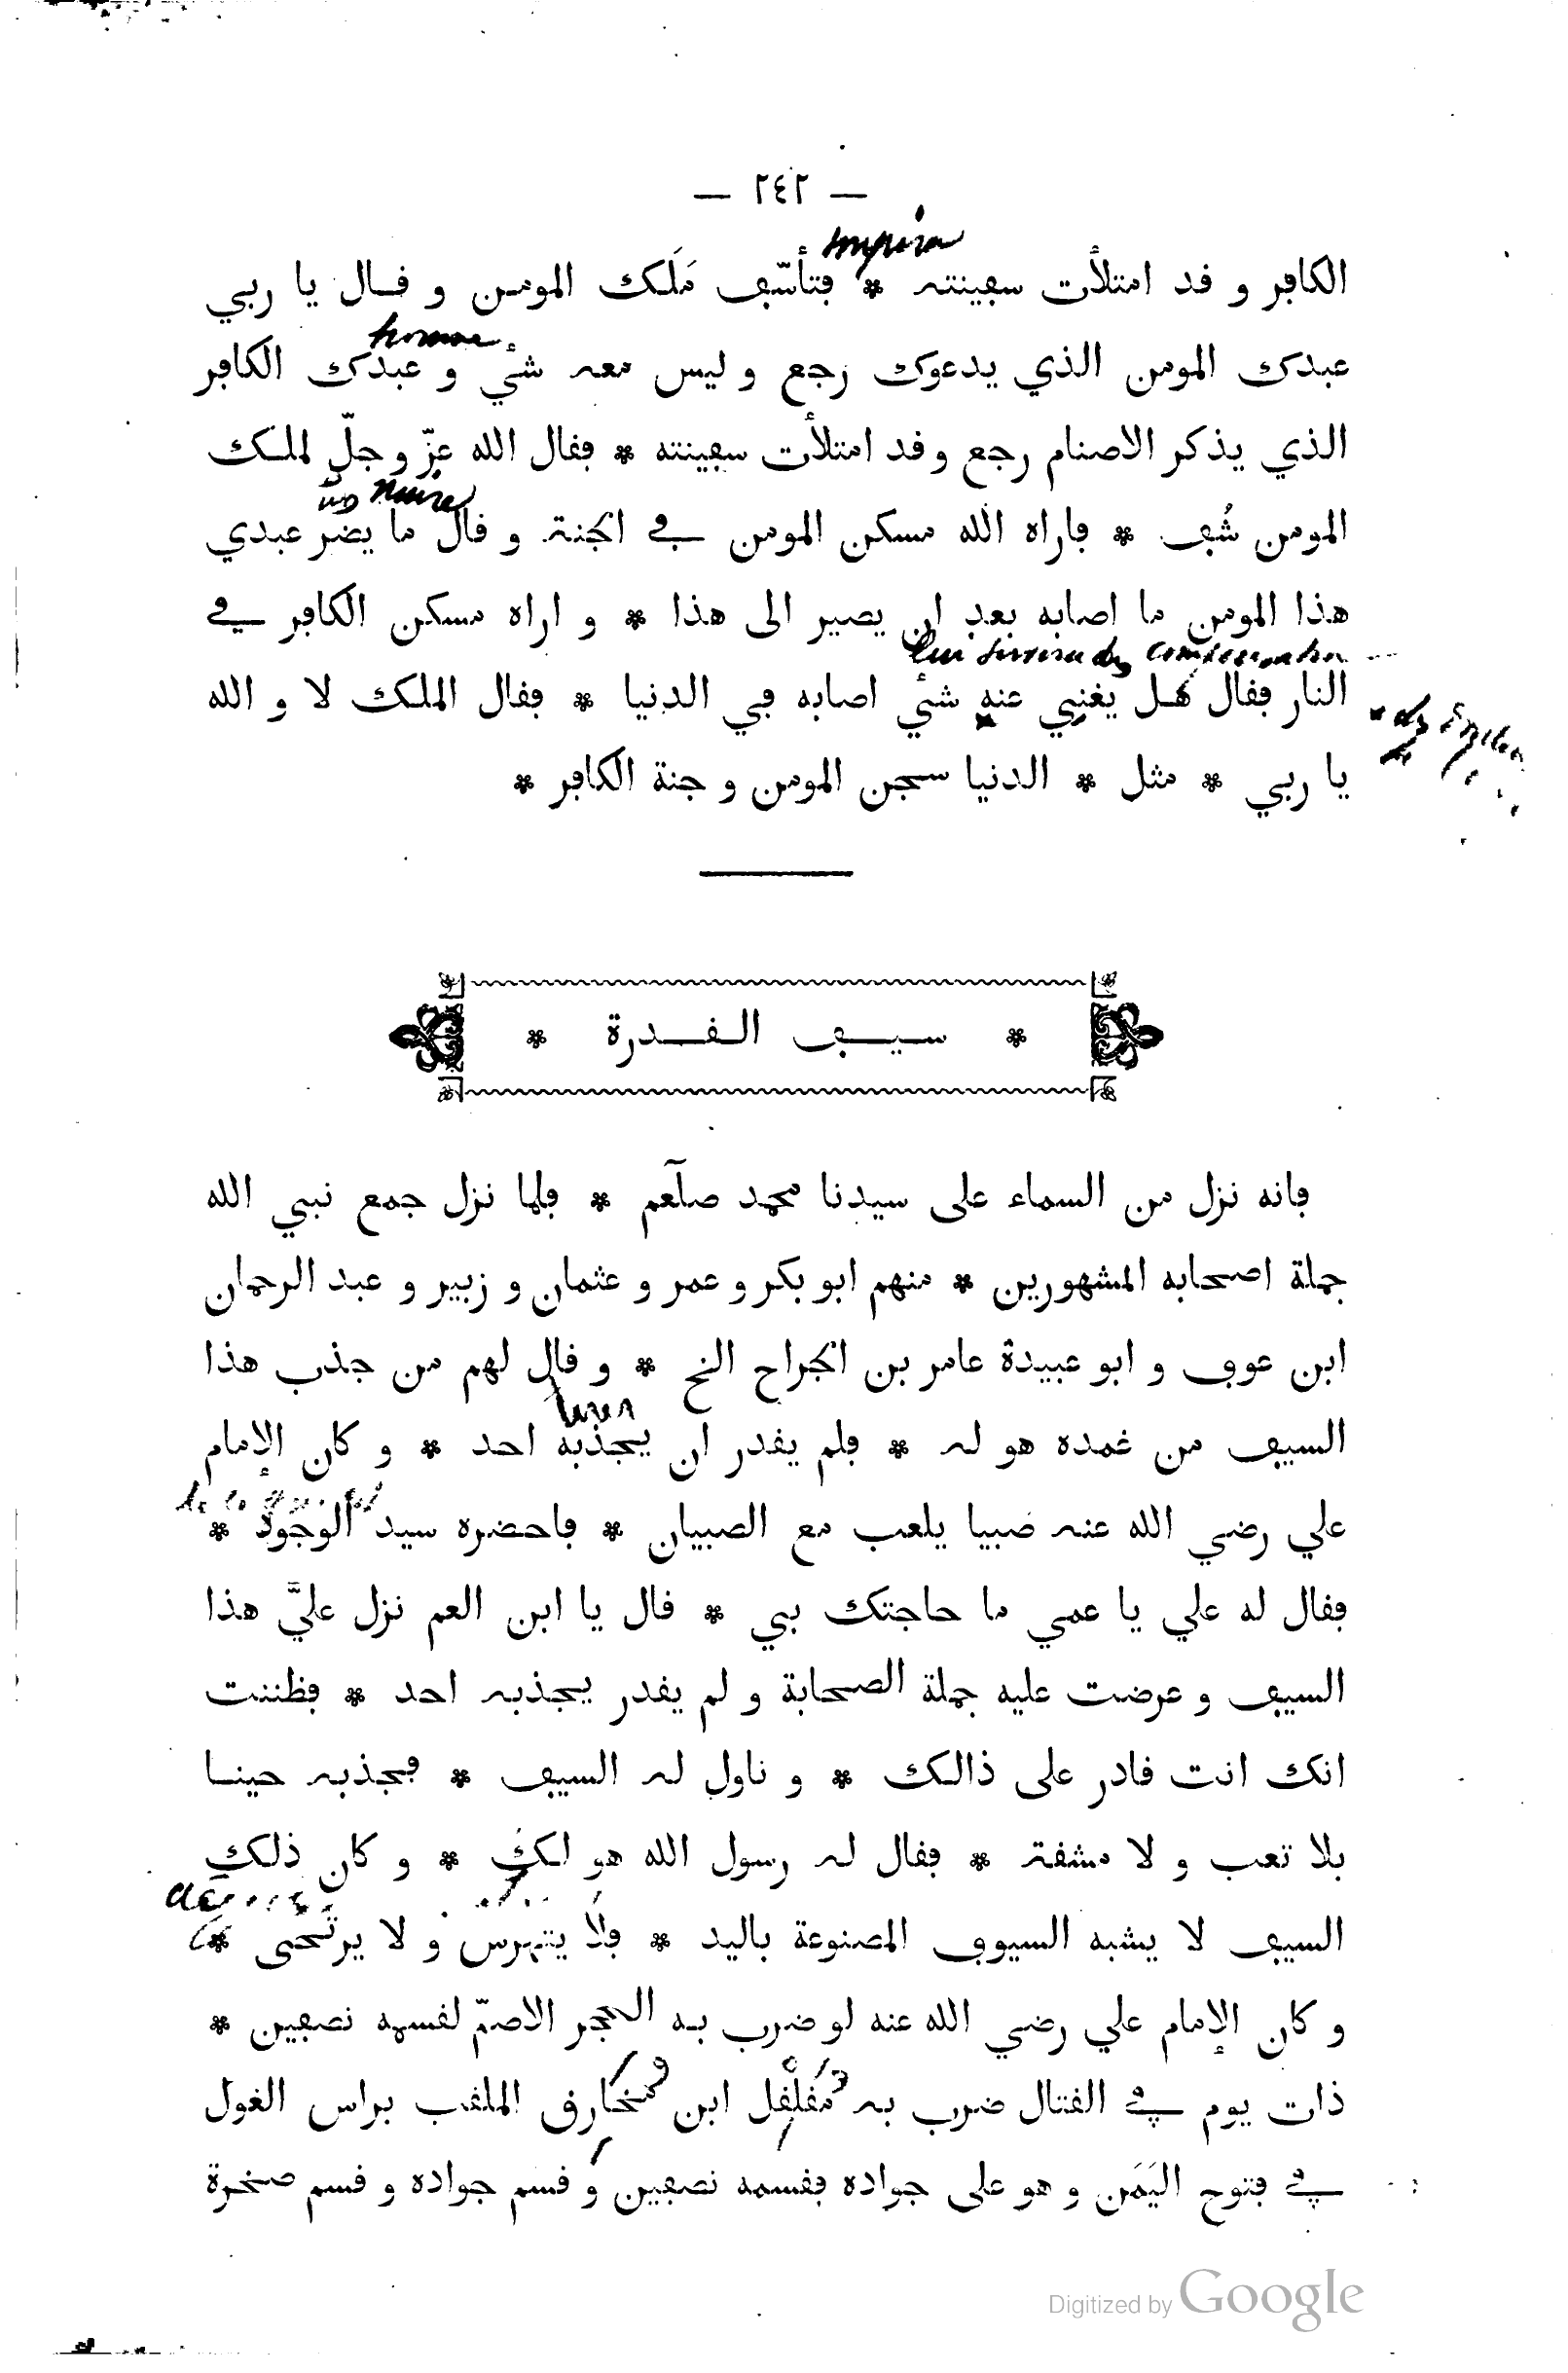 — ٢٤٢ —
soupira
الكافر و قد امتلأت سفينته * فتأسّف مَلَك المومن و قال يا ربي
عبدك المومن الذي يدعوك رجع و ليس معه شئ و عبدك الكافر
الذي يذكر الاصنام رجع و قد امتلأت سفينته * فقال الله عزّ و جلّ لملك
nuire
المومن شُف * فاراه الله مسكن المومن في الجنة و قال ما يضر عبدي
هذا المومن ما اصابه بعد ان يصير الى هذا * و اراه مسكن الكافر في
lui servira de compensation
النار فقال هل يغني عنه شئ اصابه في الدنيا * فقال الملك لا و الله
يا ربي * مثل * الدنيا سجن المومن و جنة الكافر *
* سيف القدرة *
فانه نزل من السماء على سيدنا محمد صلعم * فلما نزل جمع نبي الله
جملة اصحابه المشهورين * منهم ابو بكر و عمر و عثمان و زبير و عبد الرحمان
ابن عوف و ابو عبيدة عامر بن الجراح الخ * و قال لهم من جذب هذا
السيف من غمده هو له * فلم يقدر ان يجذبه احد * و كان الإمام
علي رضي الله عنه صبيا يلعب مع الصبيان * فاحضره سيد الوجود *
فقال له علي يا عمي ما حاجتك بي * قال يا ابن العم نزل عليَّ هذا
السيف و عرضت عليه جملة الصحابة و لم يقدر يجذبه احد * فظننت
انك انت قادر على ذالك * و ناول له السيف * فجذبه حينا
بلا تعب و لا مشقة * فقال له رسول الله هو لك * و كان ذلك
السيف لا يشبه السيوف المصنوعة باليد * فلا يتهرس و لا يرتخى *
و كان الإمام علي رضي الله عنه لو ضرب به الحجر الاصمّ لقسمه نصفين *
ذات يوم في القتال ضرب به مُقلقل ابن مخارق الملقب براس الغول
في فتوح اليَمَن و هو على جواده فقسمه نصفين و قسم جواده و قسم صخرة
Digitized by Google